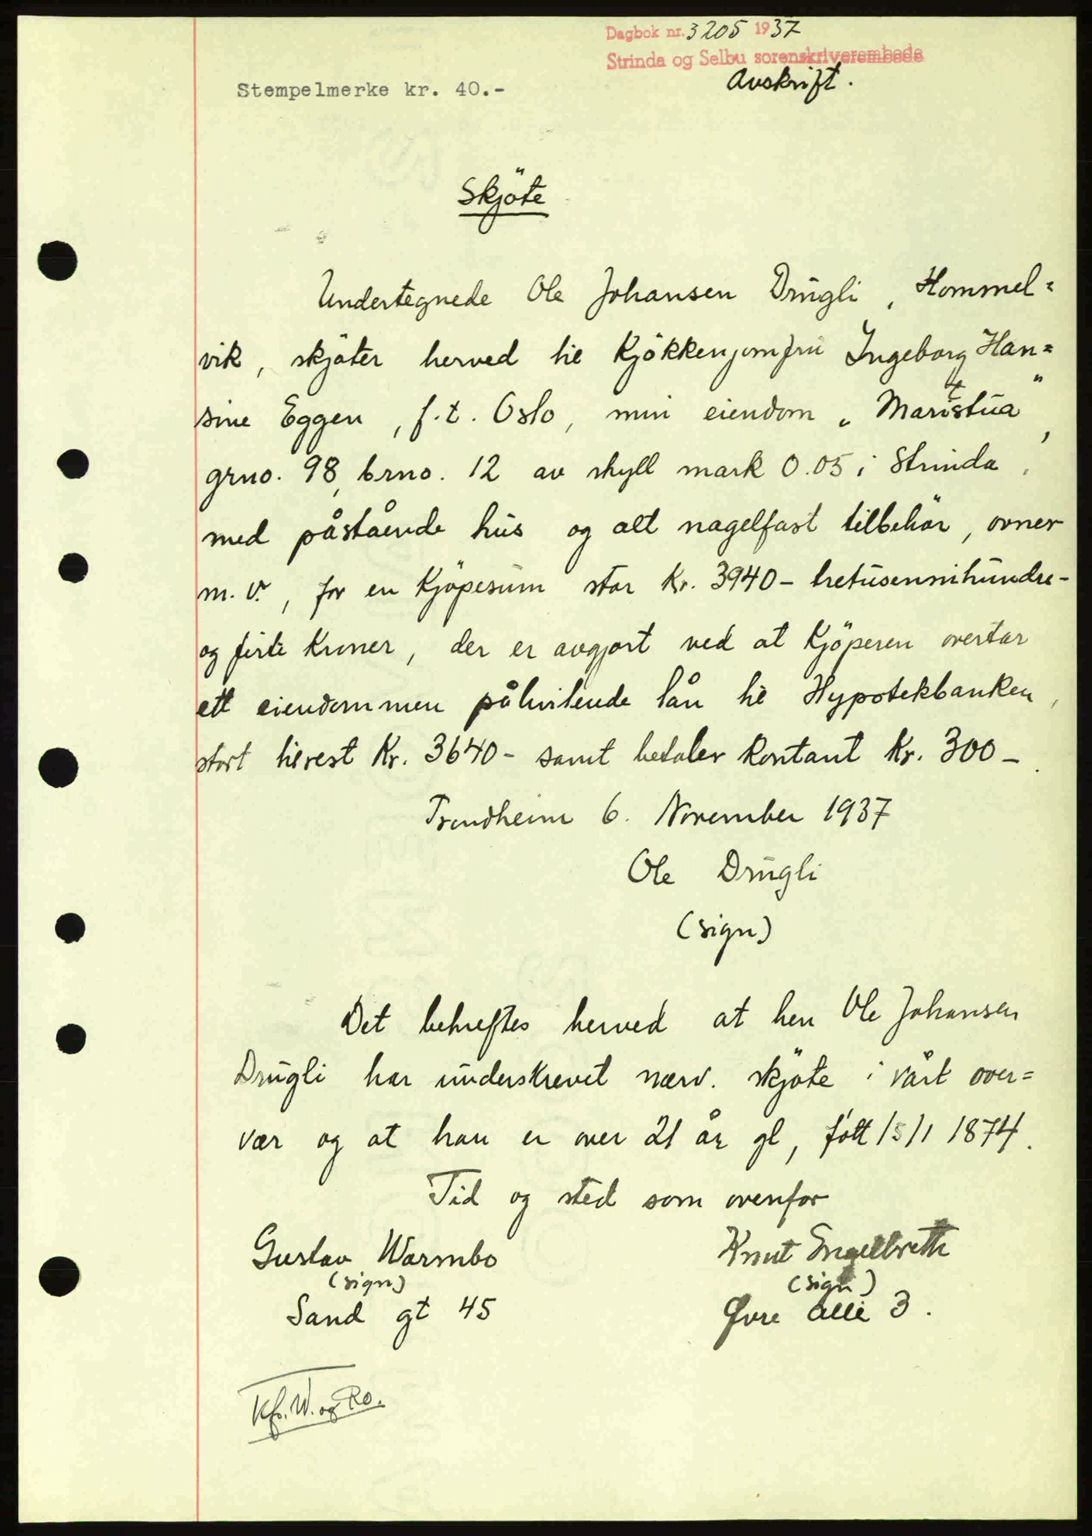 Dagbok nr. 3205 1937
Strinda og Selbu sorenskriverembede
Stempelmerke kr. 40.-
Avskrift.
Skjöte
Undertegnede Ole Johansen Drugli, Hommel=
vik, skjöter herved til Kjökkenjomfru Ingeborg Han=
sine Eggen, f.t. Oslo, min eiendom "Maristua"
grno. 98, brno. 12 av skyll mark 0.05 i Strinda,
med påstående hus og alt nagelfast tilbehör, ovner
m.v., for en Kjöpesum stor Kr. 3940- tretusennihundre-
og firti Kroner, der er avgjort ved at Kjöperen overtar
ett eiendommen påhvilende lån til Hypotekbanken,
stort tilrest Kr. 3640- samt betaler kontant Kr. 300-.
Trondheim 6. November 1937
Ole Drugli
(sign)
Det bekreftes herved at herr Ole Johansen
Drugli har underskrevet nærv. skjöte i vårt over=
vær og at han er over 21 år gl, født 15/1 1874.
Tid og sted som ovenfor
Gustav Warmbo Knut Engelbreth
(sign) (sign)
Sand gt 45 Øvre alle 3.
Kfr. W. og Ro.